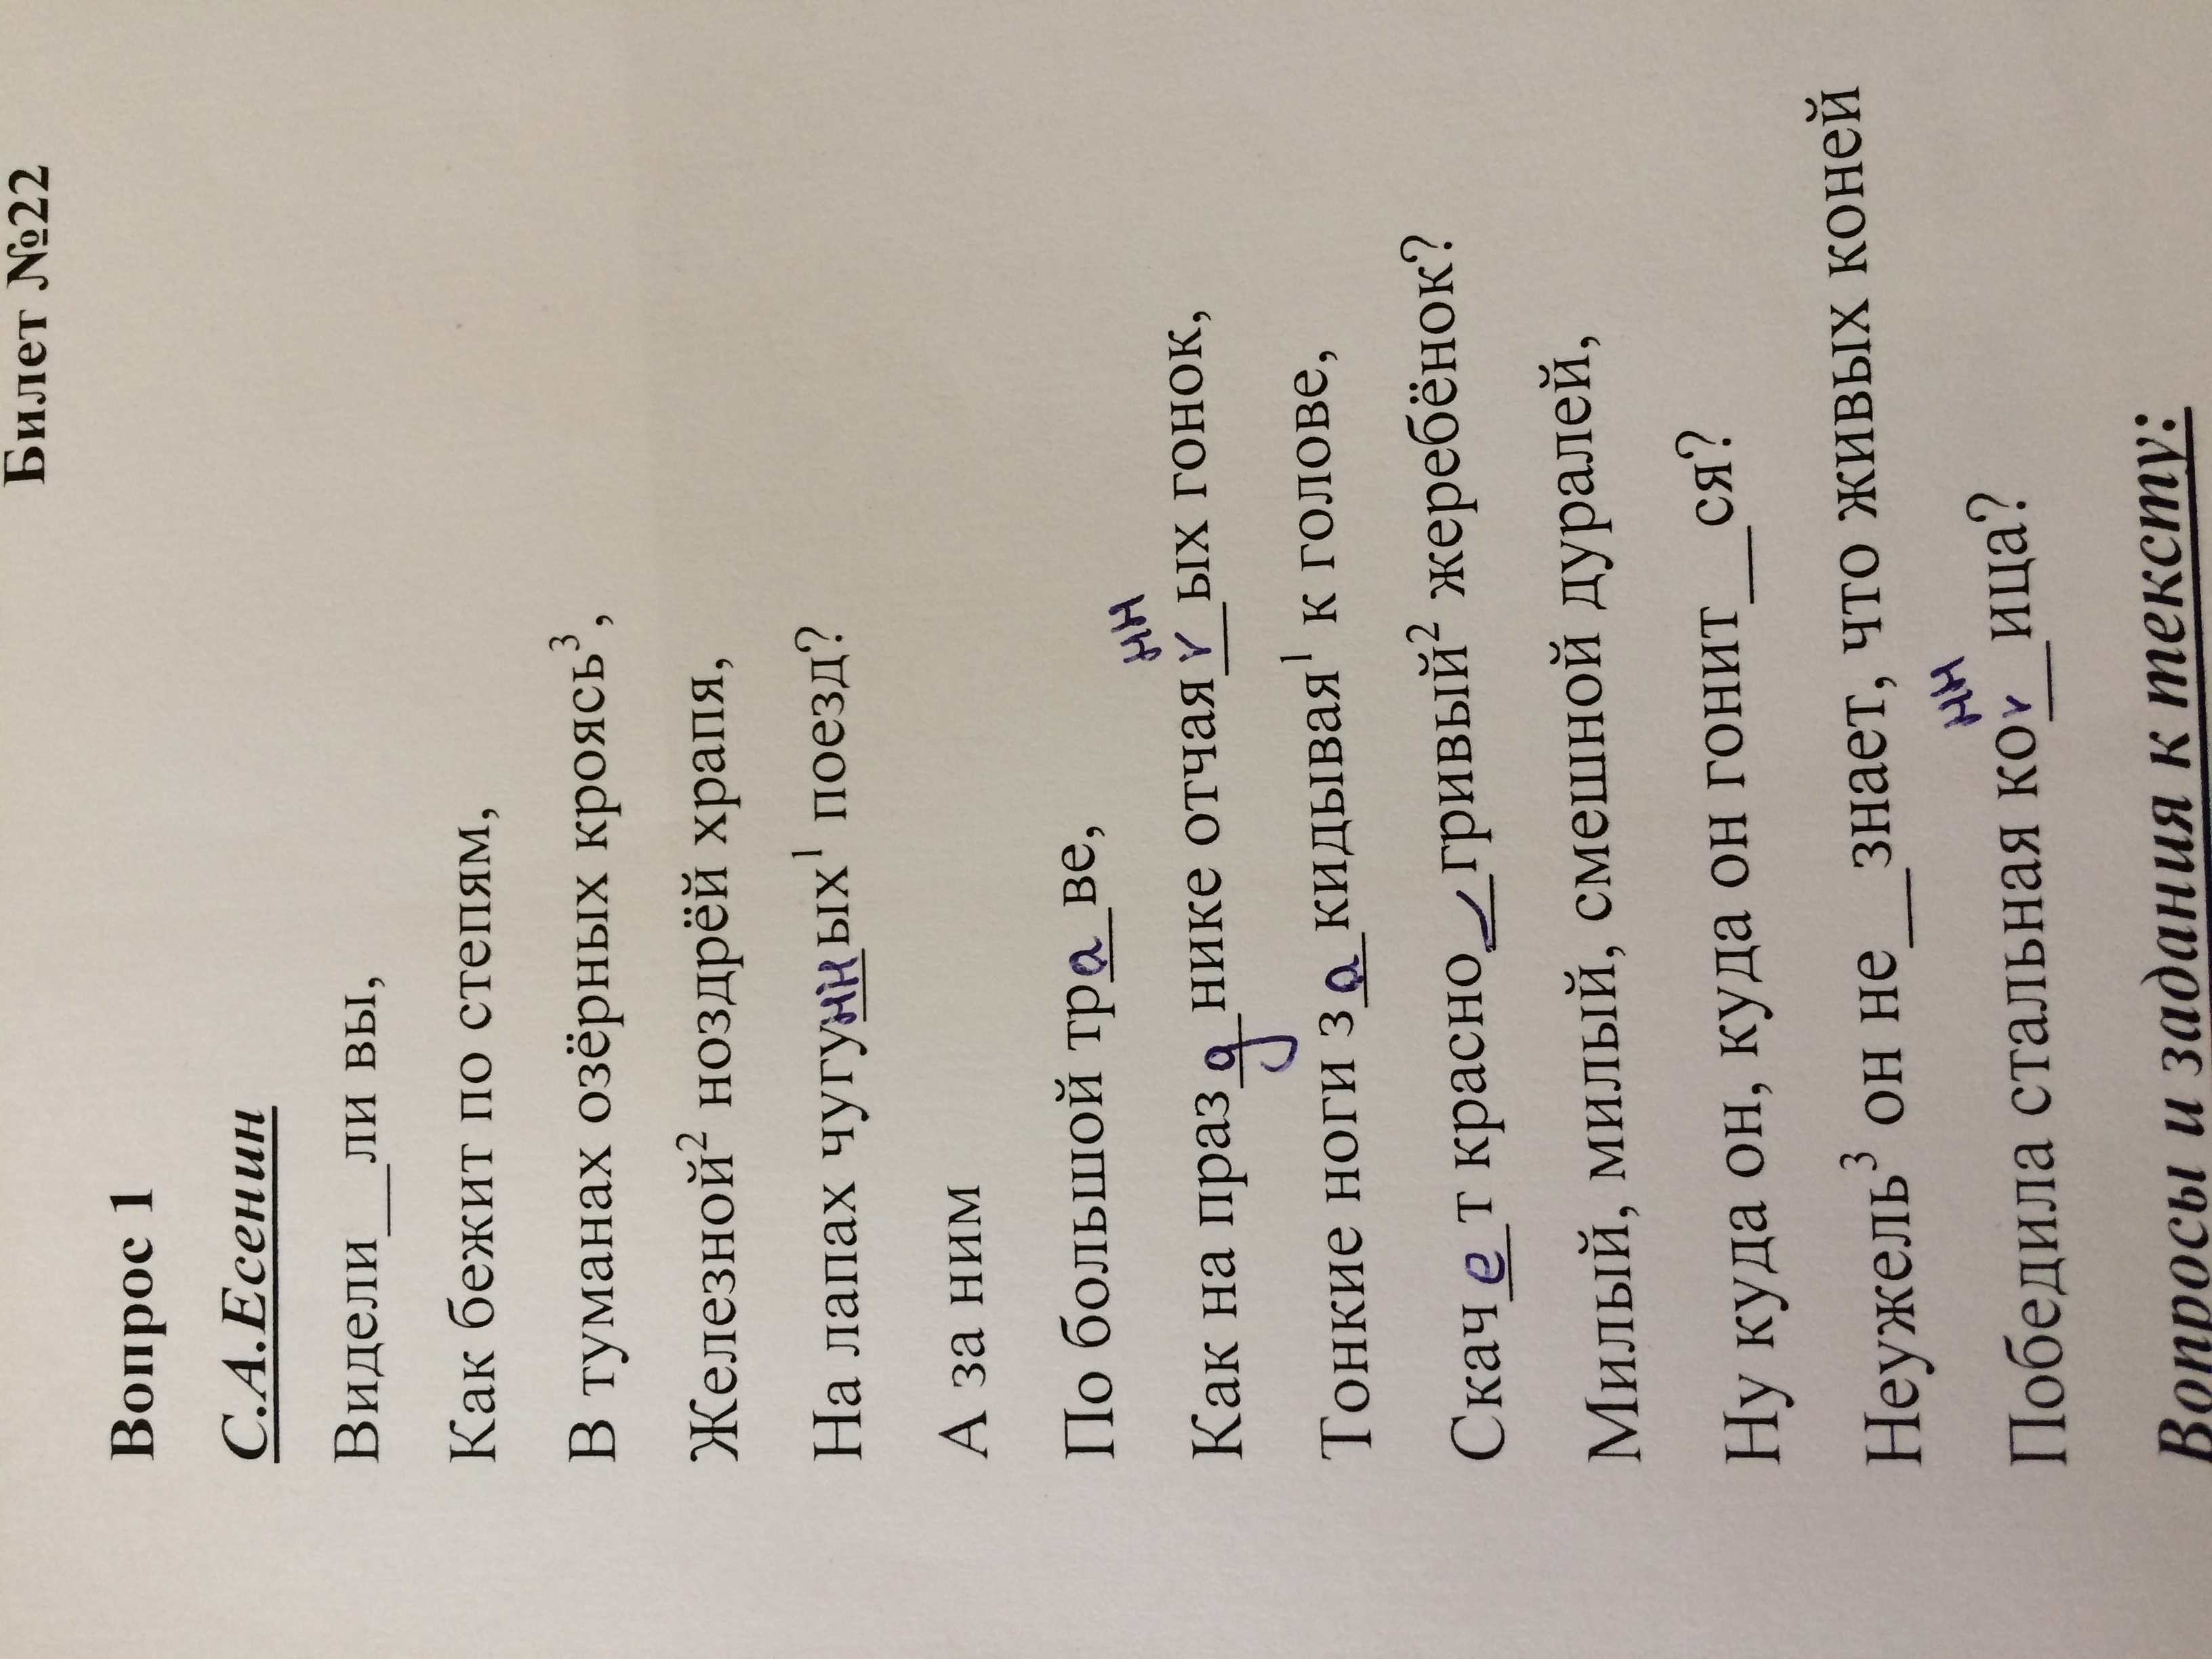 Билет №22
Вопрос 1
С.А.Есенин
Видели__ли вы,
Как бежит по степям,
В туманах озёрных кроясь³,
Железной² ноздрёй храпя,
На лапах чугунных¹ поезд?
А за ним
По большой траве,
нн
Как на празднике отчая_ых гонок,
Тонкие ноги закидывая¹ к голове,
Скачет красно_гривый² жеребёнок?
Милый, милый, смешной дуралей,
Ну куда он, куда он гонит__ся?
Неужель³ он не__знает, что живых коней
нн
Победила стальная ко__ица?
Вопросы и задания к тексту: